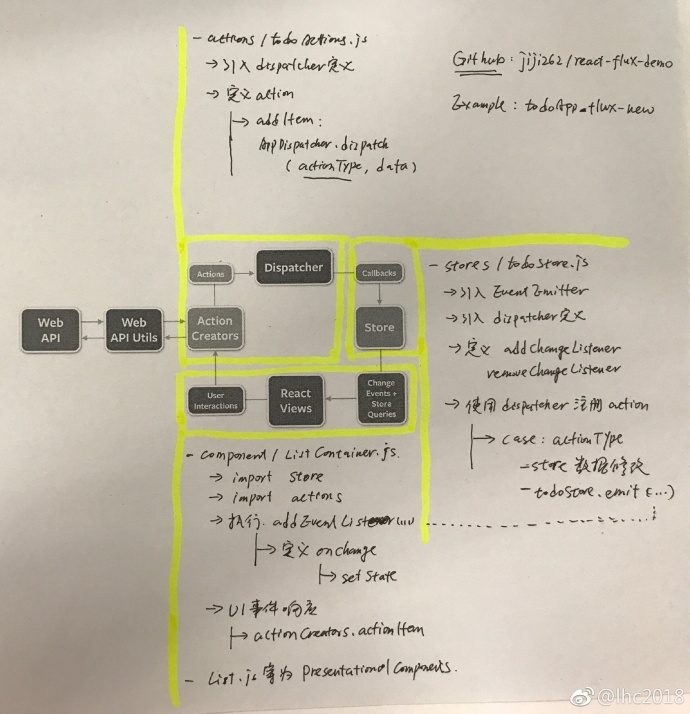 - actions / todoActions.js
→ 引入 dispatcher 定义
→ 定义 action
→ addItem :
AppDispatcher.dispatch
( actionType, data )
Github : jiji262/react-flux-demo
Example : todoApp-flux-new
Web API
Web API Utils
Actions
Action Creators
Dispatcher
Callbacks
Store
User Interactions
React Views
Change Events + Store Queries
- stores / todoStore.js
→ 引入 EventEmitter
→ 引入 dispatcher 定义
→ 定义 addChangeListener
removeChangeListener
→ 使用 dispatcher 注册 action
→ case : actionType
- store 数据修改
- todoStore.emit (...)
- component / ListContainer.js.
→ import store
→ import actions
→ 执行. addEventListener
→ 定义 onchange
→ setState
→ UI 事件响应
→ actionCreators.actionItem
- List.js 写为 Presentational Components.
@lhc2018